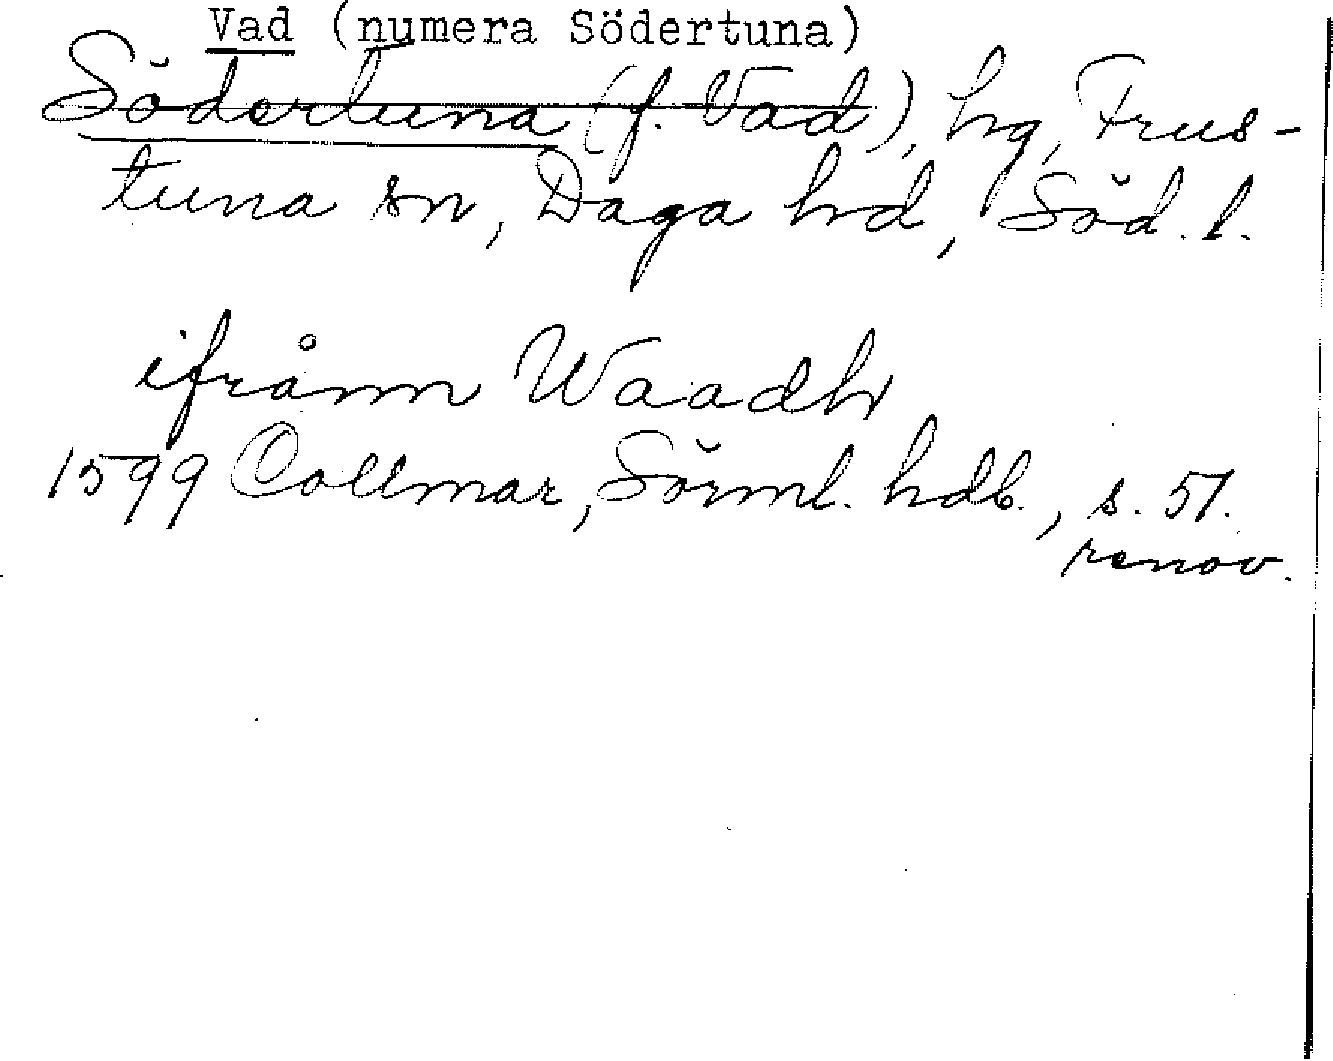 Vad (numera Södertuna)
Södertuna (f. Vad), hg, Frus-
tuna sn, Daga hd, Söd. l.
ifrånn Waadh
1599 Collmar, Sörml. hdb., s. 51.
renov.